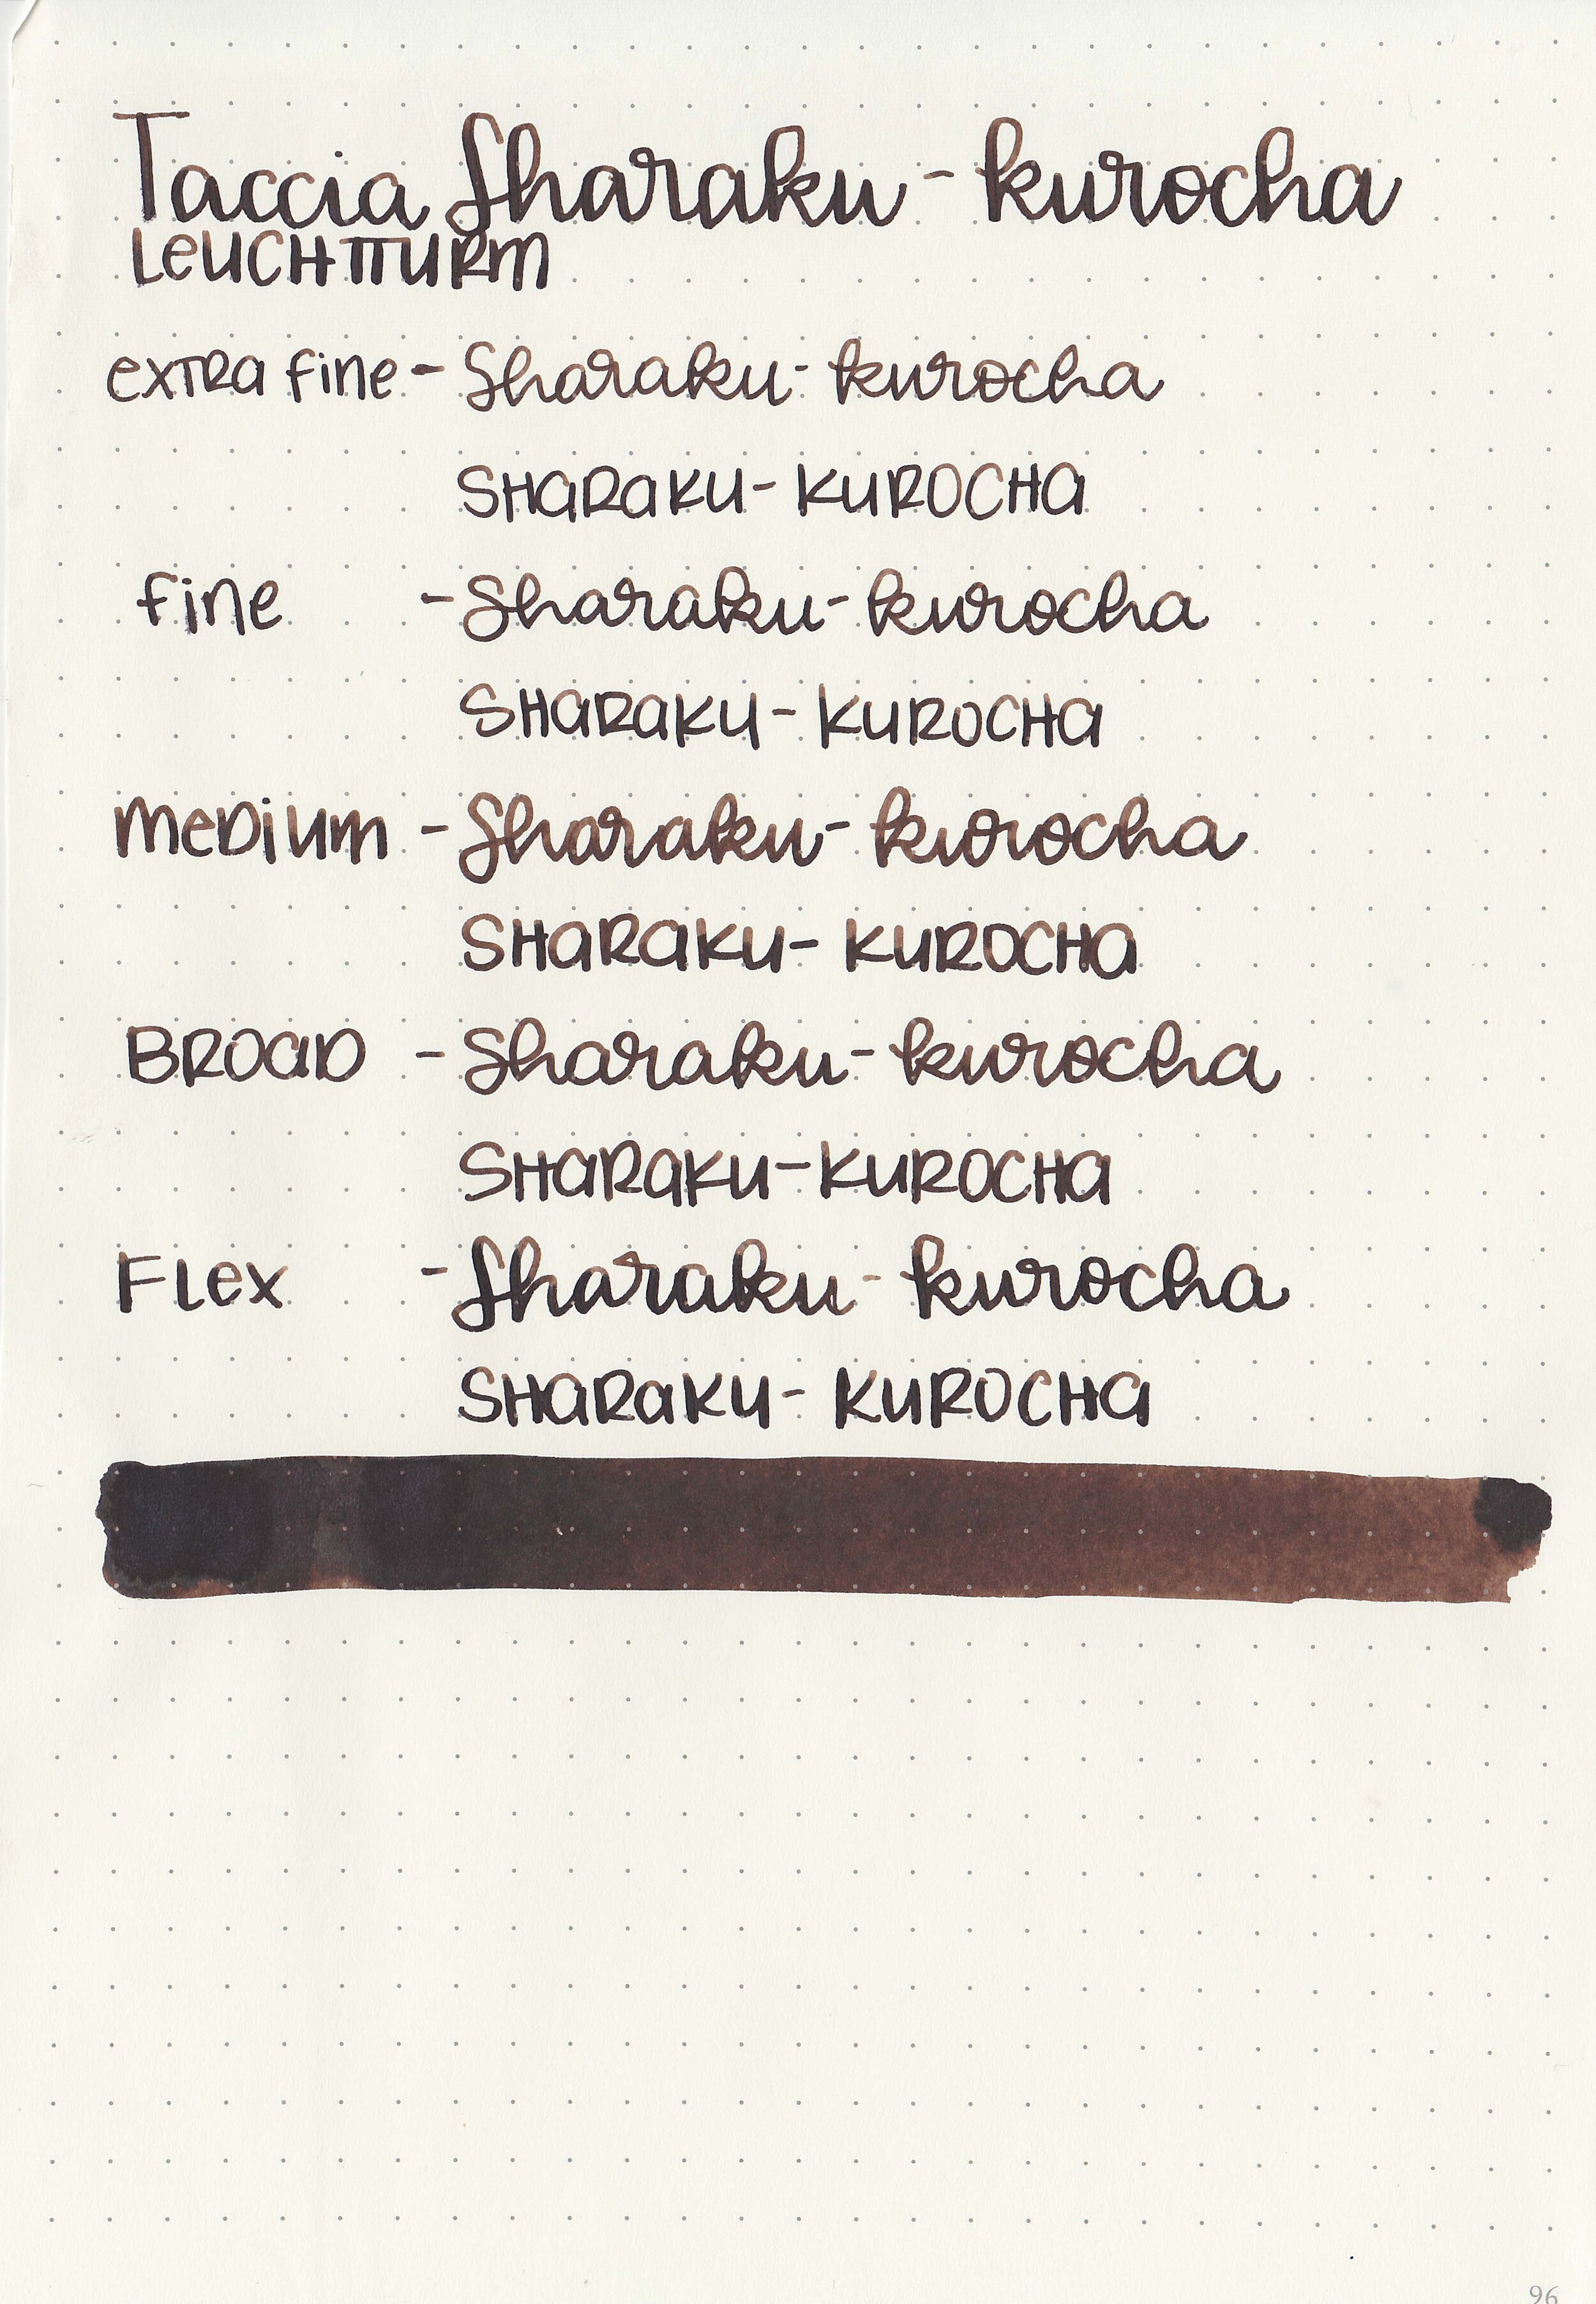 Taccia Sharaku-kurocha
LEUCHTTURM
extra fine - Sharaku-kurocha
SHARAKU-KUROCHA
fine - Sharaku-kurocha
SHARAKU-KUROCHA
MEDIUM - Sharaku-kurocha
SHARAKU-KUROCHA
BROAD - Sharaku-kurocha
SHARAKU-KUROCHA
FLEX - Sharaku-kurocha
SHARAKU-KUROCHA
96